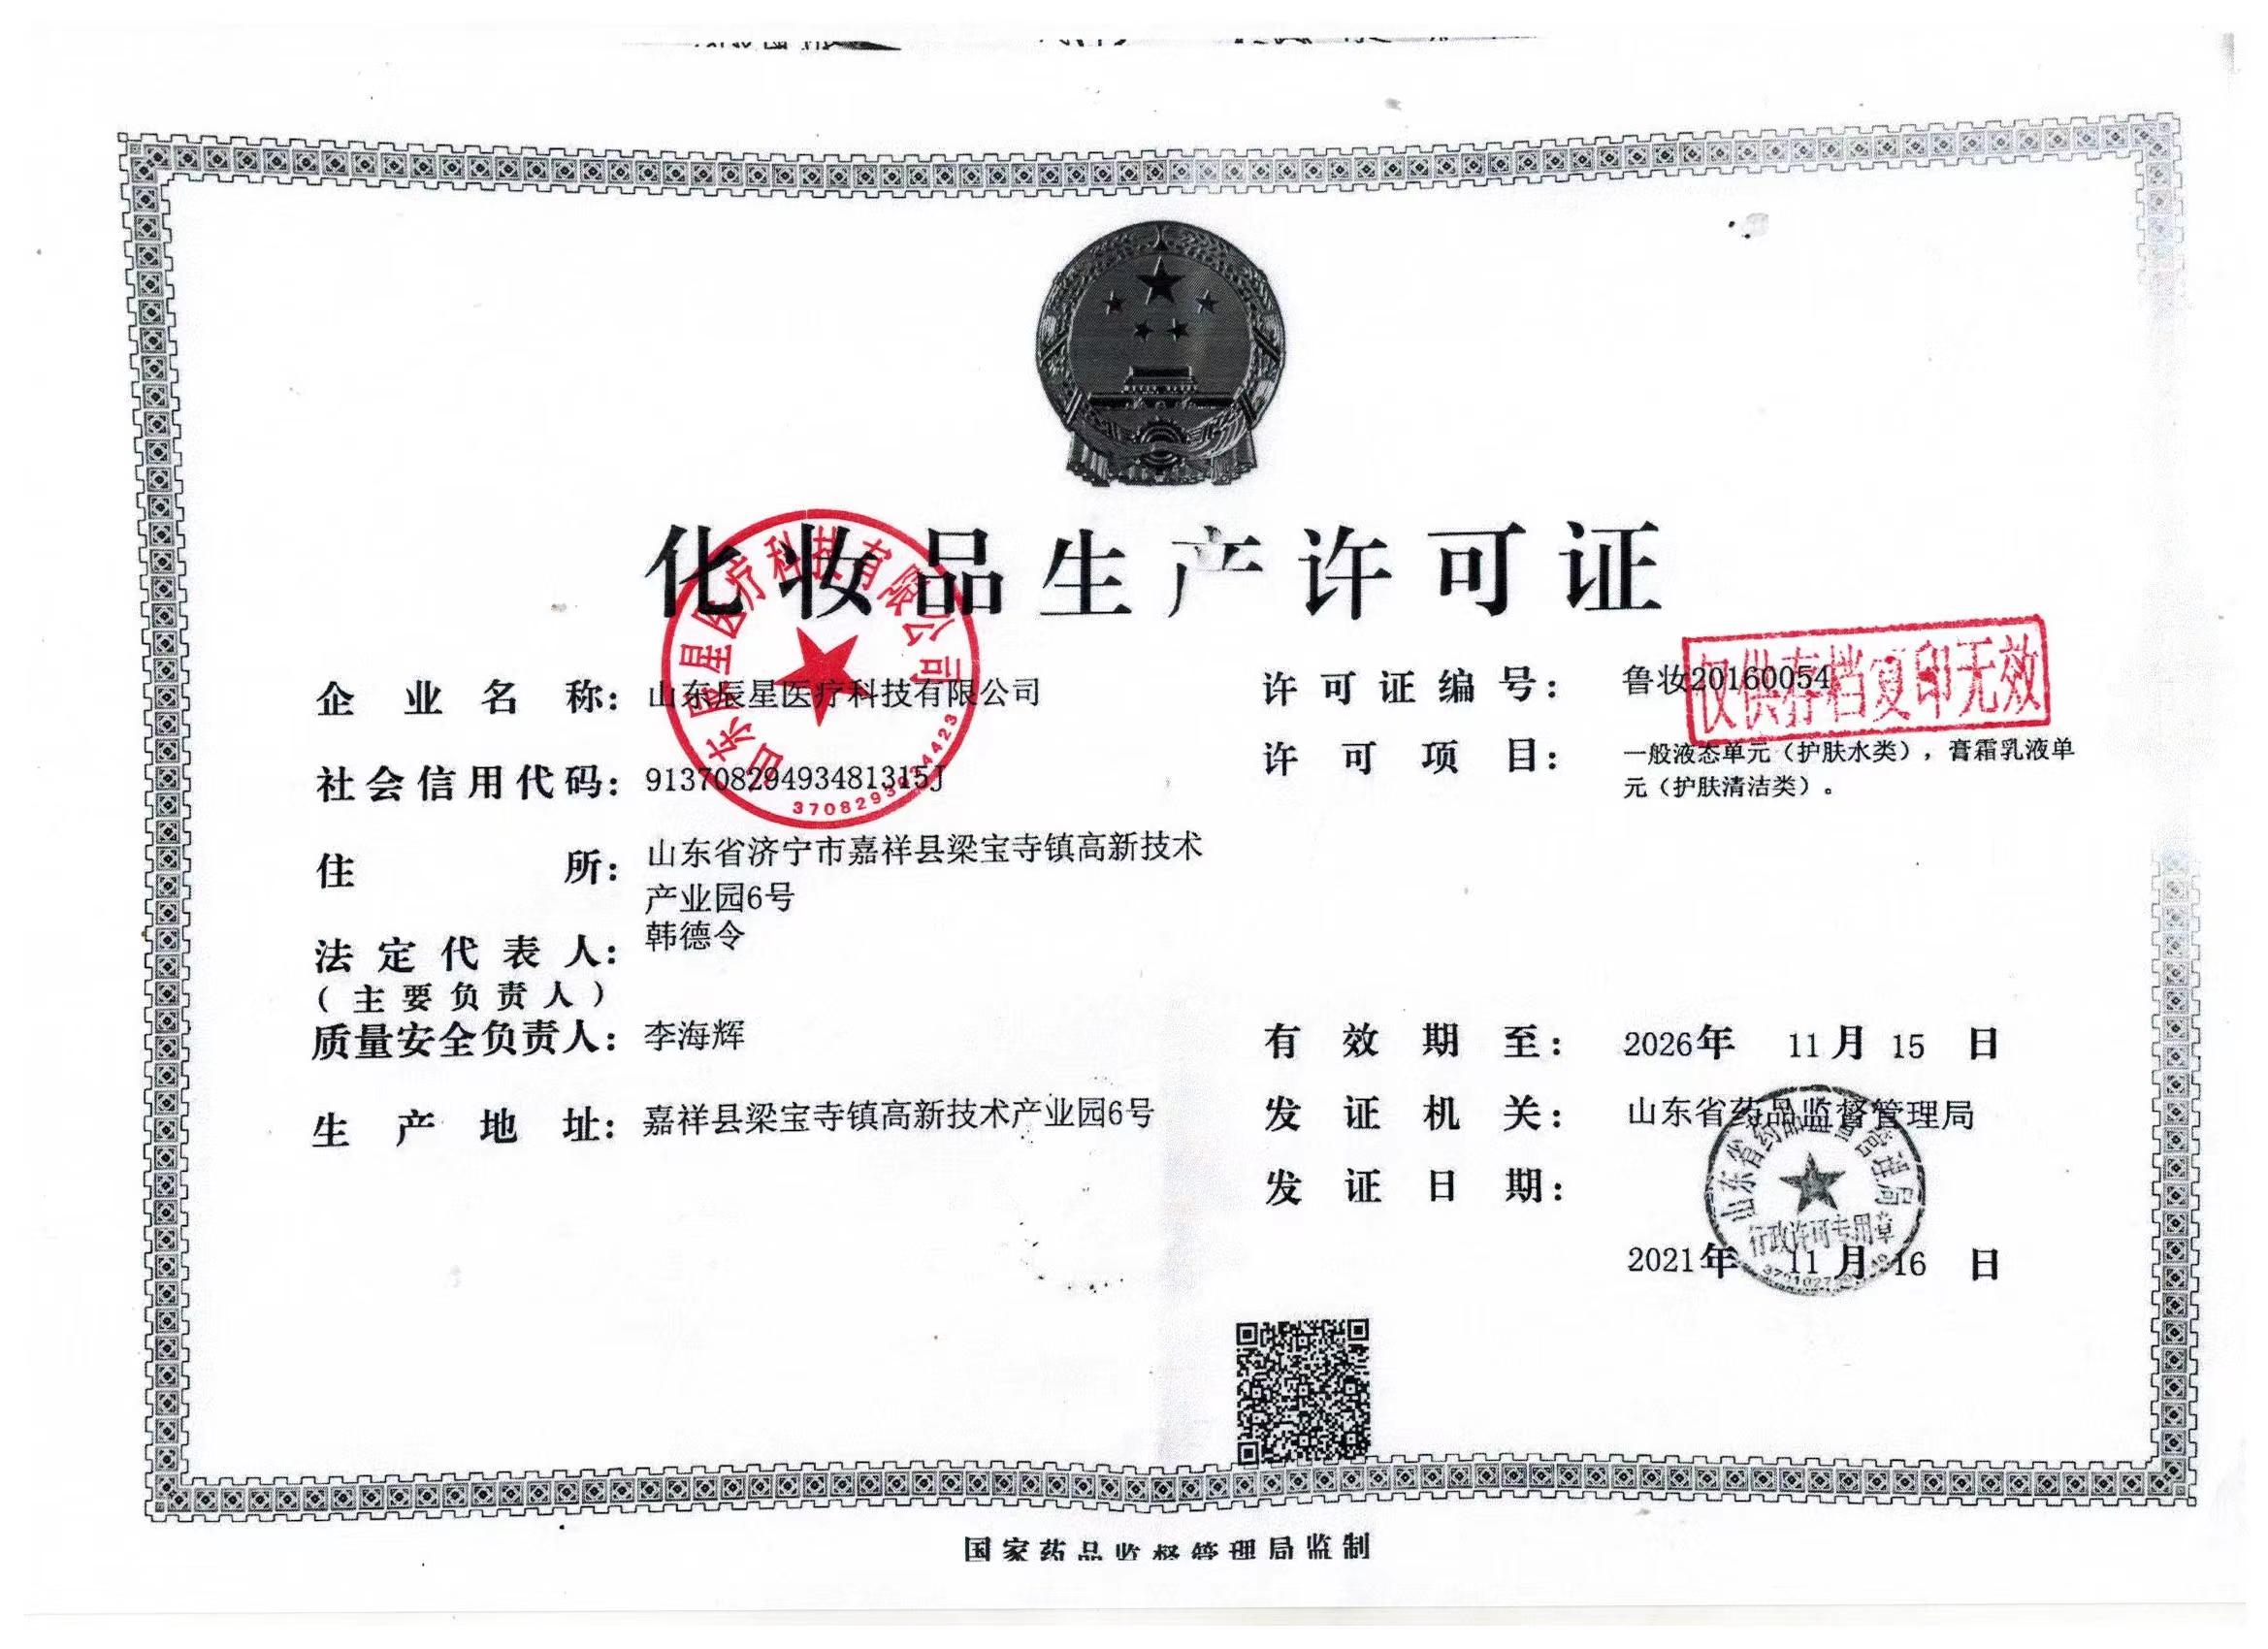 化妆品生产许可证
企业名称：山东辰星医疗科技有限公司
社会信用代码：91370829493481315J
住所：山东省济宁市嘉祥县梁宝寺镇高新技术
产业园6号
法定代表人：韩德令
（主要负责人）
质量安全负责人：李海辉
生产地址：嘉祥县梁宝寺镇高新技术产业园6号
许可证编号：鲁妆20160054
仅供存档复印无效
许可项目：一般液态单元（护肤水类），膏霜乳液单
元（护肤清洁类）。
有效期至：2026年 11月 15 日
发证机关：山东省药品监督管理局
发证日期：
2021年 11月 16 日
山东辰星医疗科技有限公司
山东省药品监督管理局
行政许可专用章
国家药品监督管理局监制